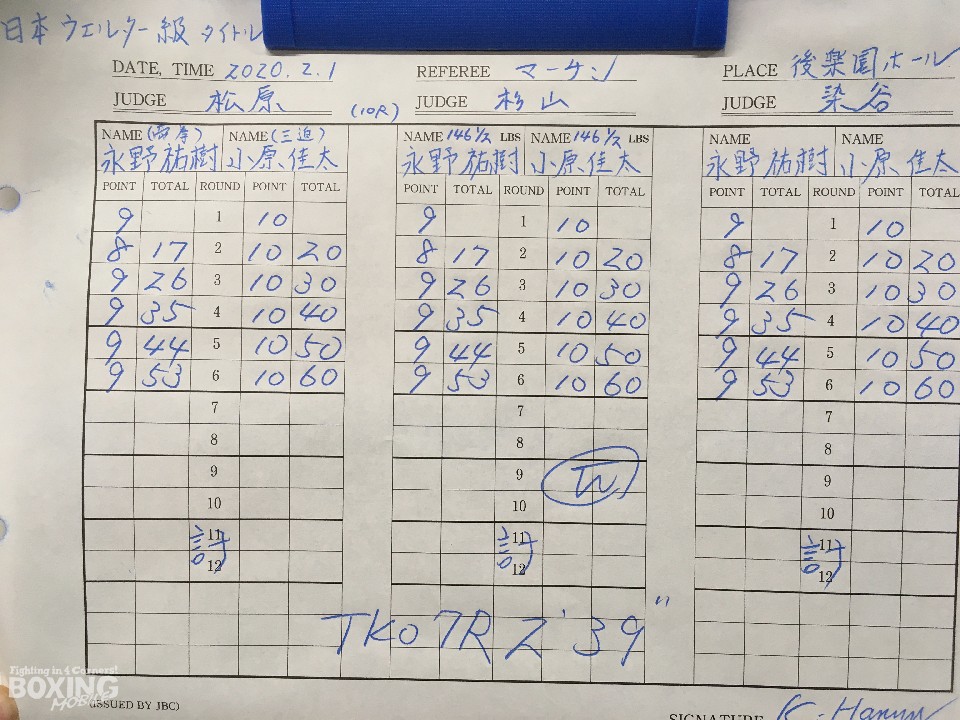 日本ウェルター級タイトル
DATE, TIME 2020.2.1 REFEREE マーチン PLACE 後楽園ホール
JUDGE 松原 (10R) JUDGE 杉山 JUDGE 染谷
NAME NAME (三迫) NAME 146 1/2 LBS NAME 146 1/2 LBS NAME NAME
永野祐樹 小原佳太 永野祐樹 小原佳太 永野祐樹 小原佳太
POINT TOTAL ROUND POINT TOTAL POINT TOTAL ROUND POINT TOTAL POINT TOTAL ROUND POINT TOTAL
9 1 10 9 1 10 9 1 10
8 17 2 10 20 8 17 2 10 20 8 17 2 10 20
9 26 3 10 30 9 26 3 10 30 9 26 3 10 30
9 35 4 10 40 9 35 4 10 40 9 35 4 10 40
9 44 5 10 50 9 44 5 10 50 9 44 5 10 50
9 53 6 10 60 9 53 6 10 60 9 53 6 10 60
7 7 7
8 8 8
9 9 9
10 10 10
11 11 11
計 計 計
12 12 12
TKO 7R 2'39"
Fighting in 4 Corners!
BOXING
MOBILE
(ISSUED BY JBC)
SIGNATURE